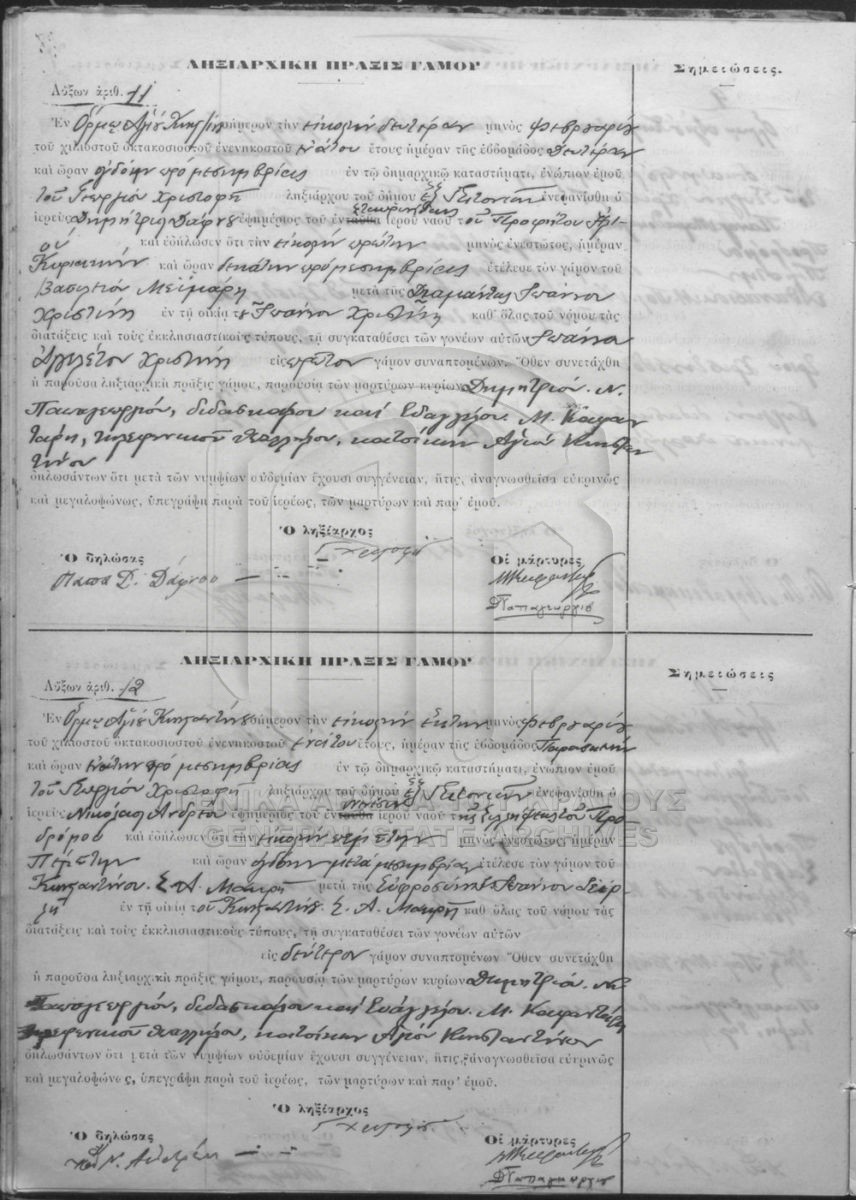 ΛΗΞΙΑΡΧΙΚΗ ΠΡΑΞΙΣ ΓΑΜΟΥ
Σημειώσεις.
Αὔξων ἀριθ. 11
Ἐν Ὅρμῳ Ἁγίου Κων/νου σήμερον τὴν εἰκοστὴν δευτέραν μηνὸς Φεβρουαρίου
τοῦ χιλιοστοῦ ὀκτακοσιοστοῦ ἐνενηκοστοῦ ἐνάτου ἔτους ἡμέραν τῆς ἑβδομάδος Δευτέραν
καὶ ὥραν ὀγδόην πρὸ μεσημβρίας ἐν τῷ δημαρχικῷ καταστήματι, ἐνώπιον ἐμοῦ
τοῦ Γεωργίου Χριστοφῆ ληξιάρχου τοῦ δήμου ἐνεφανίσθη ὁ
ἱερεὺς Δημήτριος Δάφνου ἐφημέριος τοῦ ἐνταῦθα ἱεροῦ ναοῦ τοῦ Προφήτου Ἠλι-
οῦ καὶ ἐδήλωσεν ὅτι τὴν εἰκοστὴν πρώτην μηνὸς ἐνεστῶτος, ἡμέραν
Κυριακὴν καὶ ὥραν δεκάτην πρὸ μεσημβρίας ἐτέλεσε τὸν γάμον τοῦ
Βασιλείου μετὰ τῆς Διαμάντως Ἰωάννου
Χριστινῆ ἐν τῇ οἰκίᾳ τοῦ Ἰωάννου Χριστινῆ καθ' ὅλας τοῦ νόμου τὰς
διατάξεις καὶ τοὺς ἐκκλησιαστικοὺς τύπους, τῇ συγκαταθέσει τῶν γονέων αὐτῶν Ἰωάννου
Χριστινῆ εἰς πρῶτον γάμον συναπτομένων. Ὅθεν συνετάχθη
ἡ παροῦσα ληξιαρχικὴ πρᾶξις γάμου, παρουσίᾳ τῶν μαρτύρων κυρίων Δημητρίου. Ν.
Παπαγεωργίου, διδασκάλου καὶ Εὐαγγέλου. Μ. Καφαν
τάρη, τηλεφωνικοῦ ὑπαλλήλου, κατοίκων Ἁγίου Κωνσταν
τίνου
δηλωσάντων ὅτι μετὰ τῶν νυμφίων οὐδεμίαν ἔχουσι συγγένειαν, ἥτις, ἀναγνωσθεῖσα εὐκρινῶς
καὶ μεγαλοφώνως, ὑπεγράφη παρὰ τοῦ ἱερέως, τῶν μαρτύρων καὶ παρ' ἐμοῦ.
Ὁ ληξίαρχος
Ὁ δηλώσας
Οἱ μάρτυρες
Παπα Δ. Δάφνου
ΔΠαπαγεωργίου
ΛΗΞΙΑΡΧΙΚΗ ΠΡΑΞΙΣ ΓΑΜΟΥ
Σημειώσεις
Αὔξων ἀριθ. 12
Ἐν Ὅρμῳ Ἁγίου Κωνσταντίνου σήμερον τὴν εἰκοστὴν ἕκτην μηνὸς Φεβρουαρίου
τοῦ χιλιοστοῦ ὀκτακοσιοστοῦ ἐνενηκοστοῦ ἐνάτου ἔτους, ἡμέραν τῆς ἑβδομάδος Παρασκευὴν
καὶ ὥραν ἐνάτην πρὸ μεσημβρίας ἐν τῷ δημαρχικῷ καταστήματι, ἐνώπιον ἐμοῦ
τοῦ Γεωργίου Χριστοφῆ ληξιάρχου τοῦ δήμου ἐνεφανίσθη ὁ
ΓΕΝΙΚΑ ΑΡΧΕΙΑ ΤΟΥ ΚΡΑΤΟΥΣ
ἱερεὺς Νικόλαος Ἀνδρέου ἐφημέριος τοῦ ἐνταῦθα ἱεροῦ ναοῦ Προ-
GENERAL STATE ARCHIVES
δρόμου καὶ ἐδήλωσεν ὅτι τὴν εἰκοστὴν πέμπτην μηνὸς ἐνεστῶτος, ἡμέραν
Πέμπτην καὶ ὥραν ὀγδόην μετὰ μεσημβρίαν ἐτέλεσε τὸν γάμον τοῦ
Κωνσταντίνου. Σ. Α. Μακρῆ μετὰ τῆς Εὐφροσύνης Ἰωάννου
ἐν τῇ οἰκίᾳ τοῦ Κωνσταντίνου. Σ. Α. Μακρῆ καθ' ὅλας τοῦ νόμου τὰς
διατάξεις καὶ τοὺς ἐκκλησιαστικοὺς τύπους, τῇ συγκαταθέσει τῶν γονέων αὐτῶν
εἰς δεύτερον γάμον συναπτομένων Ὅθεν συνετάχθη
ἡ παροῦσα ληξιαρχικὴ πρᾶξις γάμου, παρουσίᾳ τῶν μαρτύρων κυρίων Δημητρίου. Ν.
Παπαγεωργίου, διδασκάλου καὶ Εὐαγγέλου. Μ. Καφαντάρη
τηλεφωνικοῦ ὑπαλλήλου, κατοίκων Ἁγίου Κωνσταντίνου
δηλωσάντων ὅτι μετὰ τῶν νυμφίων οὐδεμίαν ἔχουσι συγγένειαν, ἥτις, ἀναγνωσθεῖσα εὐκρινῶς
καὶ μεγαλοφώνως, ὑπεγράφη παρὰ τοῦ ἱερέως, τῶν μαρτύρων καὶ παρ' ἐμοῦ.
Ὁ ληξίαρχος
Ὁ δηλώσας
Οἱ μάρτυρες
ΔΠαπαγεωργίου